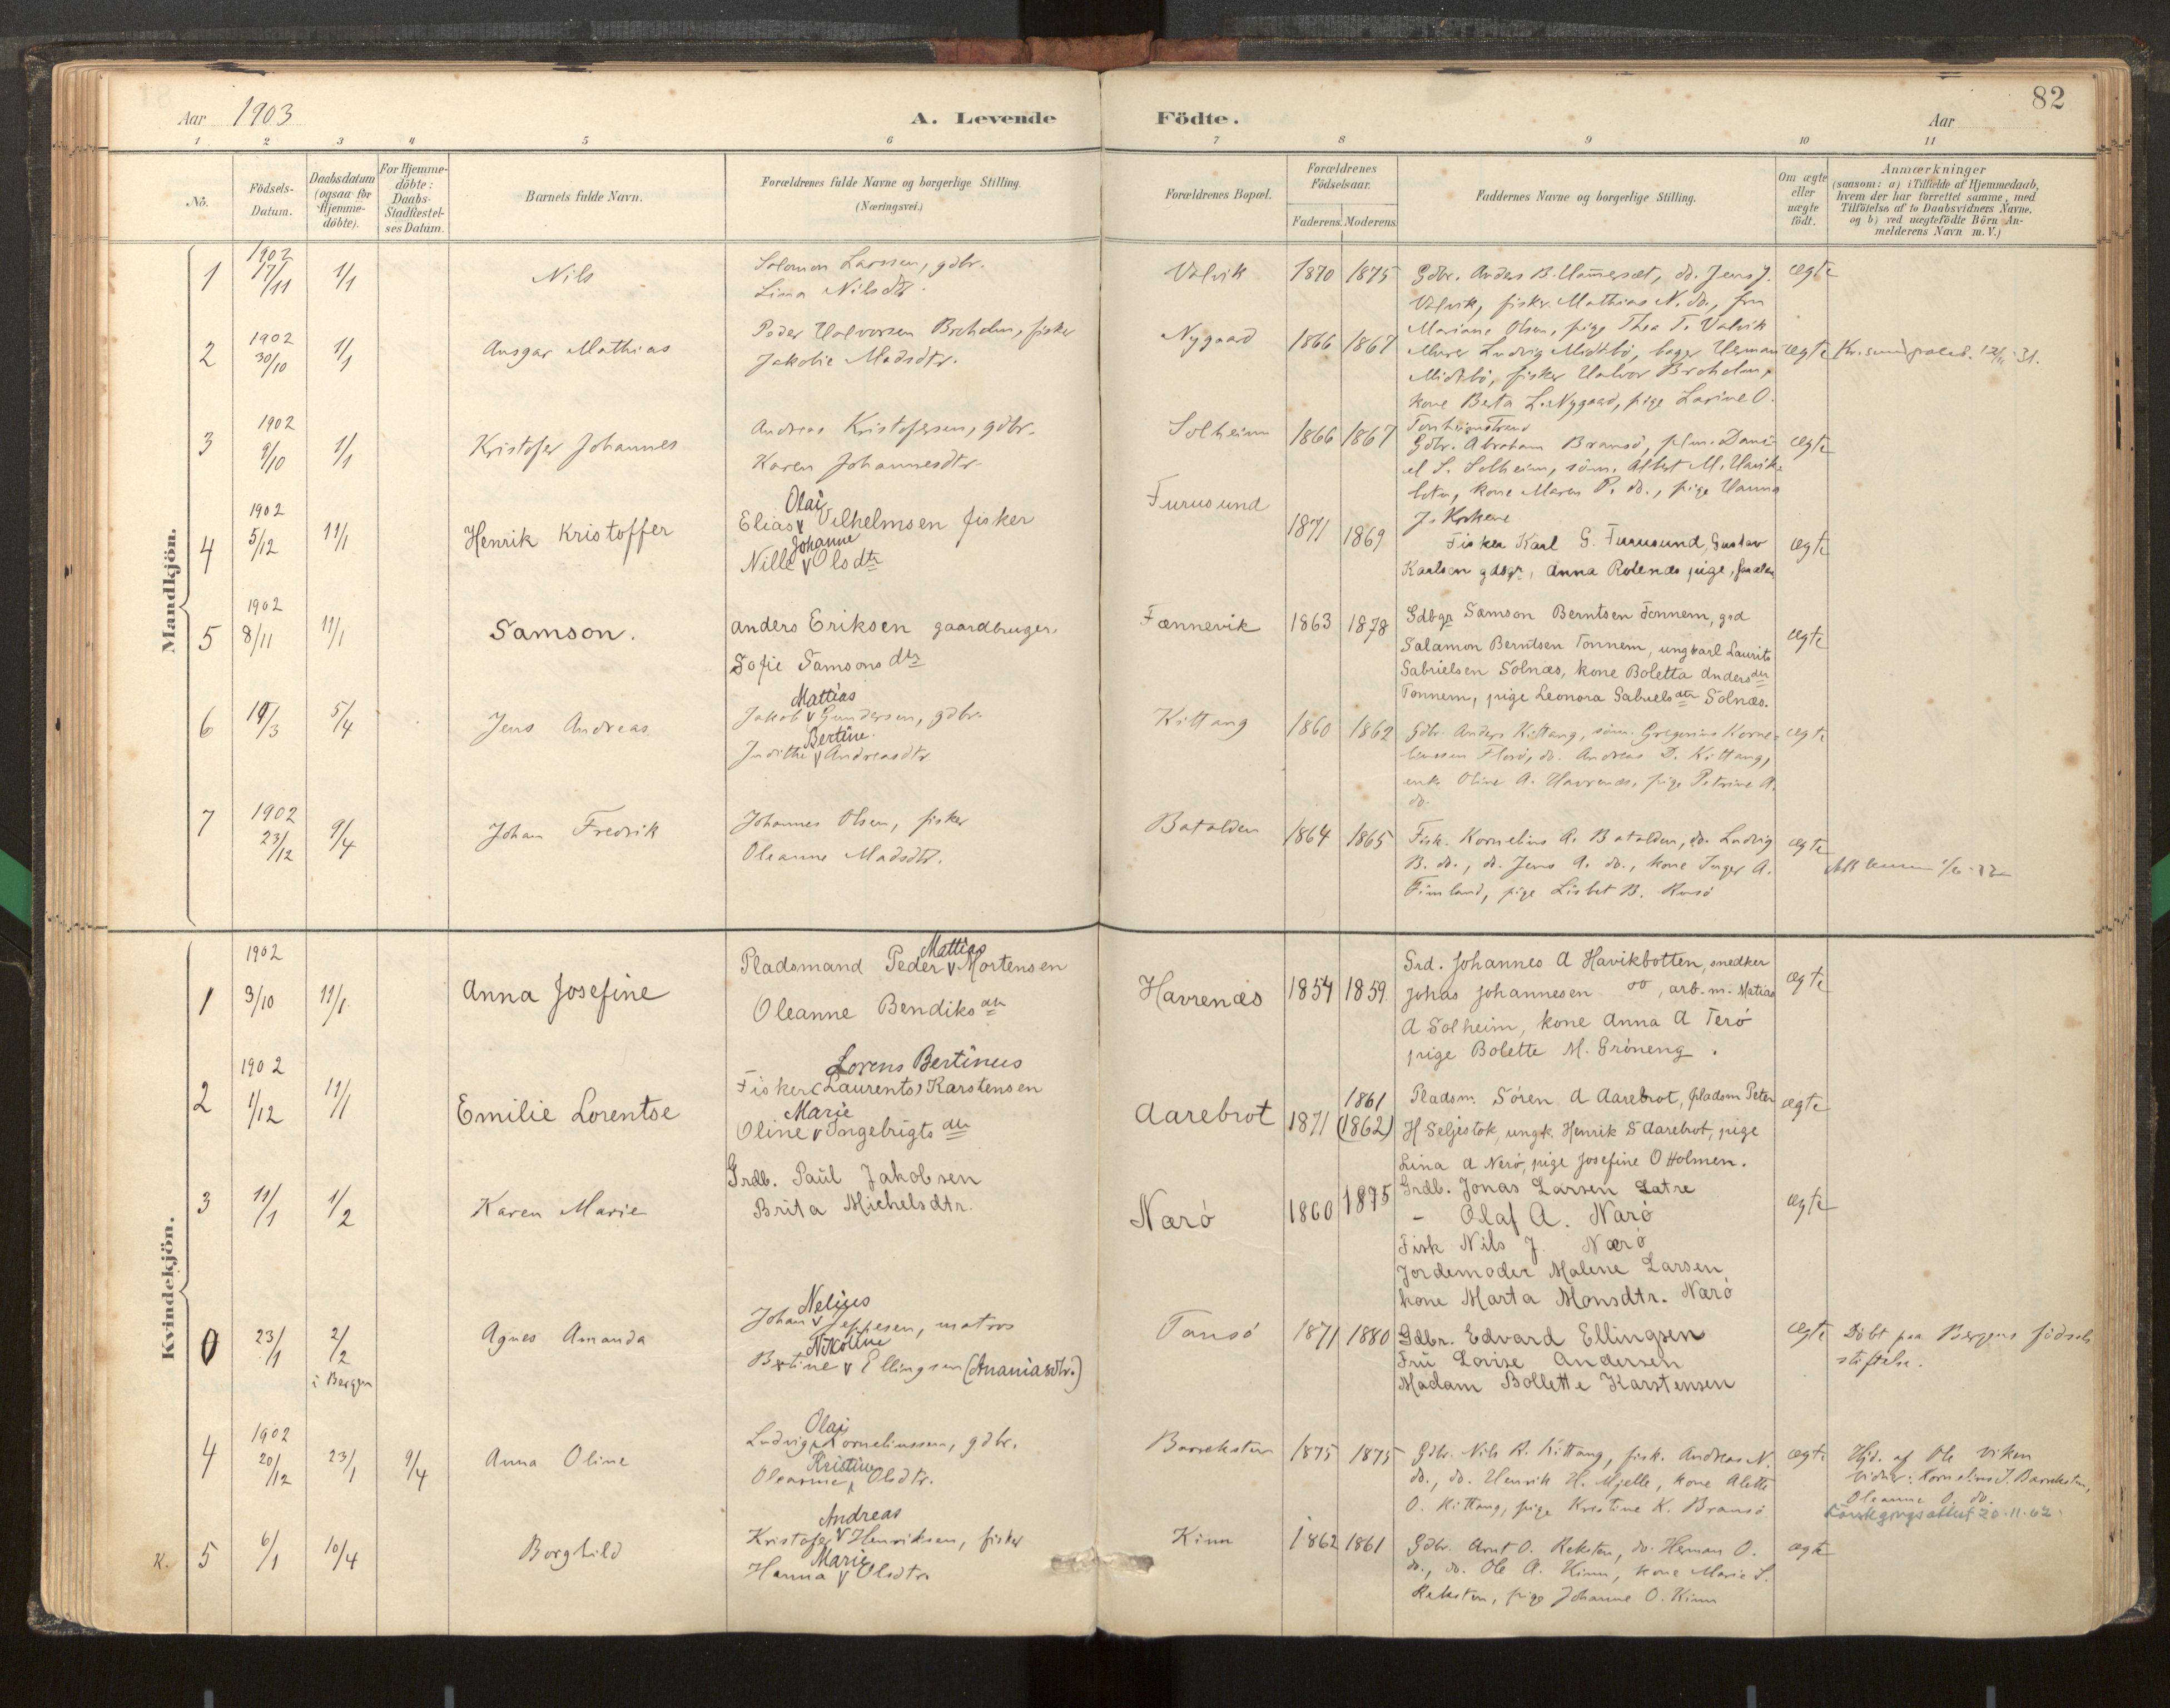 82
Aar 1903
A. Levende Födte.
Aar
1 2 3 4 5 6 7 8 9 10 11
No.
Födsels-Datum.
Daabsdatum (ogsaa for Hjemme-döbte).
For Hjemme-döbte: Daabs-Stadfæstel-ses Datum.
Barnets fulde Navn.
Forældrenes fulde Navne og borgerlige Stilling.
(Næringsvei.)
Forældrenes Bopæl.
Forældrenes Födselsaar.
Faderens. Moderens.
Faddernes Navne og borgerlige Stilling.
Om ægte eller uægte födt.
Anmærkninger
(saasom: a) i Tilfælde af Hjemmedaab,
hvem der har forrettet samme, med
Tilföielse af to Daabsvidners Navne,
og b) ved uægtefödte Börn An-
melderens Navn m. V.)
Mandkjön.
1 1902 17/11 1/1 Nils
Solomon Larssen, gdbr.
Lina Nilsdtr.
Valvik 1870 1875
Gdbr. Anders B. , do. Jens J.
Valvik, fisker Mathias N. do., fru
Mariane Olsen, pige Thea T. Valvik
ægte
2 1902 30/10 1/1 Ansgar Mathias
Peder Halvorsen Broholm, fisker
Jakobie Madsdtr.
Nygaard 1866 1867
Murer Ludvig Midtbö, bager Herman
Midtbö, fisker Halvor Broholm,
kone Berta L. Nygaard, pige Larine O.
ægte
3 1902 9/10 1/1 Kristofer Johannes
Andreas Kristofersen, gdbr.
Karen Johannesdtr.
Solheim 1866 1867
Gdbr. Abraham Bransö, Dani-
el S. Solheim, söm. Albert M. Havik-
boten, kone Maren P. do., pige Hanna
J.
ægte
4 1902 5/12 11/1 Henrik Kristoffer
Olai
Elias v Vilhelmsen fisker
Johanne
Nille v Olsdtr
Furusund 1871 1869
Fisker Karl G. Furusund, Gustav
Karlsen gdbgr, Anna Rotenæs pige,
ægte
5 1902 8/11 11/1 Samson.
Anders Eriksen gaardbruger.
Sofie Samsonsdtr
Fænnevik 1863 1878
Gdbgr Samson Berntsen Tonnem, grd
Salamon Berntsen Tonnem, ungkarl Laurits
Gabrielsen Solnæs, kone Boletta Andersdtr
Tonnem, pige Leonora Gabrielsdtr Solnæs.
ægte
6 5/4 Jens Andreas
Mattias
Jakob v Gundersen, gdbr.
Bertine.
Judithe v Andreasdtr
Kittang 1860 1862
Gdbr. Anders Kittang, söm. Gregorius Korne-
liussen Florö, do. Andreas D. Kittang,
enke Oline A. Havrenæs, pige Petrine A.
do.
ægte
7 1902 23/12 9/4 Johan Fredrik
Johannes Olsen, fisker
Oleanne Madsdtr.
Batalden 1864 1865
Fisk. Kornelius A. Batalden, do. Ludvig
B. do., do. Jens A. do., kone Inger A.
Fimland, pige Lisbet B.
ægte
Kvindekjön.
1 1902 3/10 11/1 Anna Josefine
Mattias
Pladsmand Peder v Mortensen
Oleanne Bendiksdtr
Havrenæs 1854 1859
Grd. Johannes A Havikbotten, snedker
Johas Johannesen do, arb.m. Matias
A Solheim, kone Anna A Terö
pige Bolette M. Gröneng.
ægte
2 1902 1/12 11/1 Emilie Lorentse
Lorens Bertinus
Fisker (Laurents) Karstensen
Marie
Oline v Ingebrigtsdtr
Aarebrot 1871 1861 (1862)
Pladsm. Sören A Aarebrot, pladsm Peter
H Seljestok, ungk. Henrik S Aarebrot, pige
Lina A Nerö, pige Josefine O Holmen.
ægte
3 11/1 1/2 Karen Marie
Grdb. Paul Jakobsen
Brita Michelsdtr.
Narö 1860 1875
Grdb. Jonas Larsen Latre
- Olaf A. Narö
Fisk Nils J. Nærö
Jordemoder Malene Larsen
kone Marta Monsdtr. Narö
ægte
0 23/1 2/2 i Bergen Agnes Amanda
Nelius
Johan v Jeppesen, matros
Nikoline
Bertine v Ellingsen (Ananiasdtr.)
Tansö 1871 1880
Gdbr. Edvard Ellingsen
Fru Lovise Andersen
Madam Bollette Karstensen
ægte
Döbt paa Bergens födsels
stiftelse.
4 1902 20/12 23/1 9/4 Anna Oline
Olai
Ludvig v Korneliussen, gdbr.
Kristine
Oleanne v Olsdtr.
Bareksten 1875 1875
Gdbr. Nils R. Kittang, fisk. Andreas N.
do., do. Henrik H. Mjelle, kone Alette
O. Kittang, pige Kristine K. Bransö
ægte
Hjd. af Ole Viken
Vidner: Kornelius J. Barreksten,
Oleanne O. do.
20.11.62.
K. 5 6/1 10/4 Borghild
Andreas
Kristofer v Henriksen, fisker
Marie
Hanna v Olsdtr.
Kinn 1862 1861
Gdbr. Arnt O. Reksten, do. Herman O.
do., do. Ole A. Kinn, kone Marie S.
Reksten, pige Johanne O. Kinn
ægte